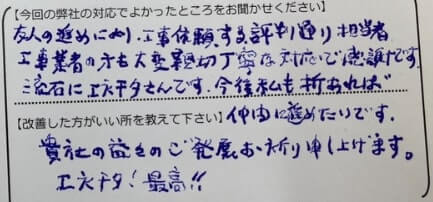 【今回の弊社の対応でよかったところをお聞かせください】
友人の進めにより、工事依頼する評判通り担当者
工事業者の方も大変親切丁寧な対応で感謝です。
流石にエネチタさんです。今後私も折あれば
【改善した方がいい所を教えて下さい】仲間に進めたいです。
貴社の益々のご発展お祈り申し上げます。
エネチタ!最高!!